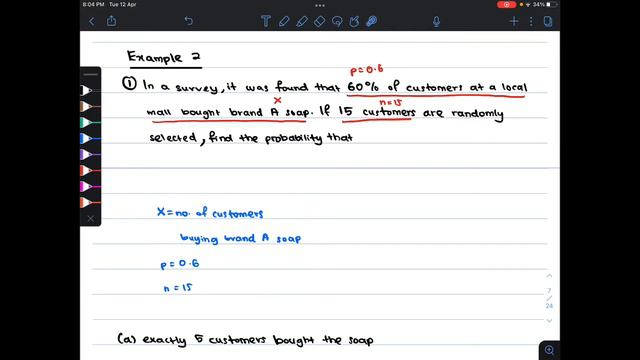 8:04 PM Tue 12 Apr
34%
Example 2
p=0.6
① In a survey, it was found that 60% of customers at a local
x
n=15
mall bought brand A soap. If 15 customers are randomly
selected, find the probability that
X = no. of customers
buying brand A soap
p = 0.6
n = 15
7
/
24
(a) exactly 5 customers bought the soap